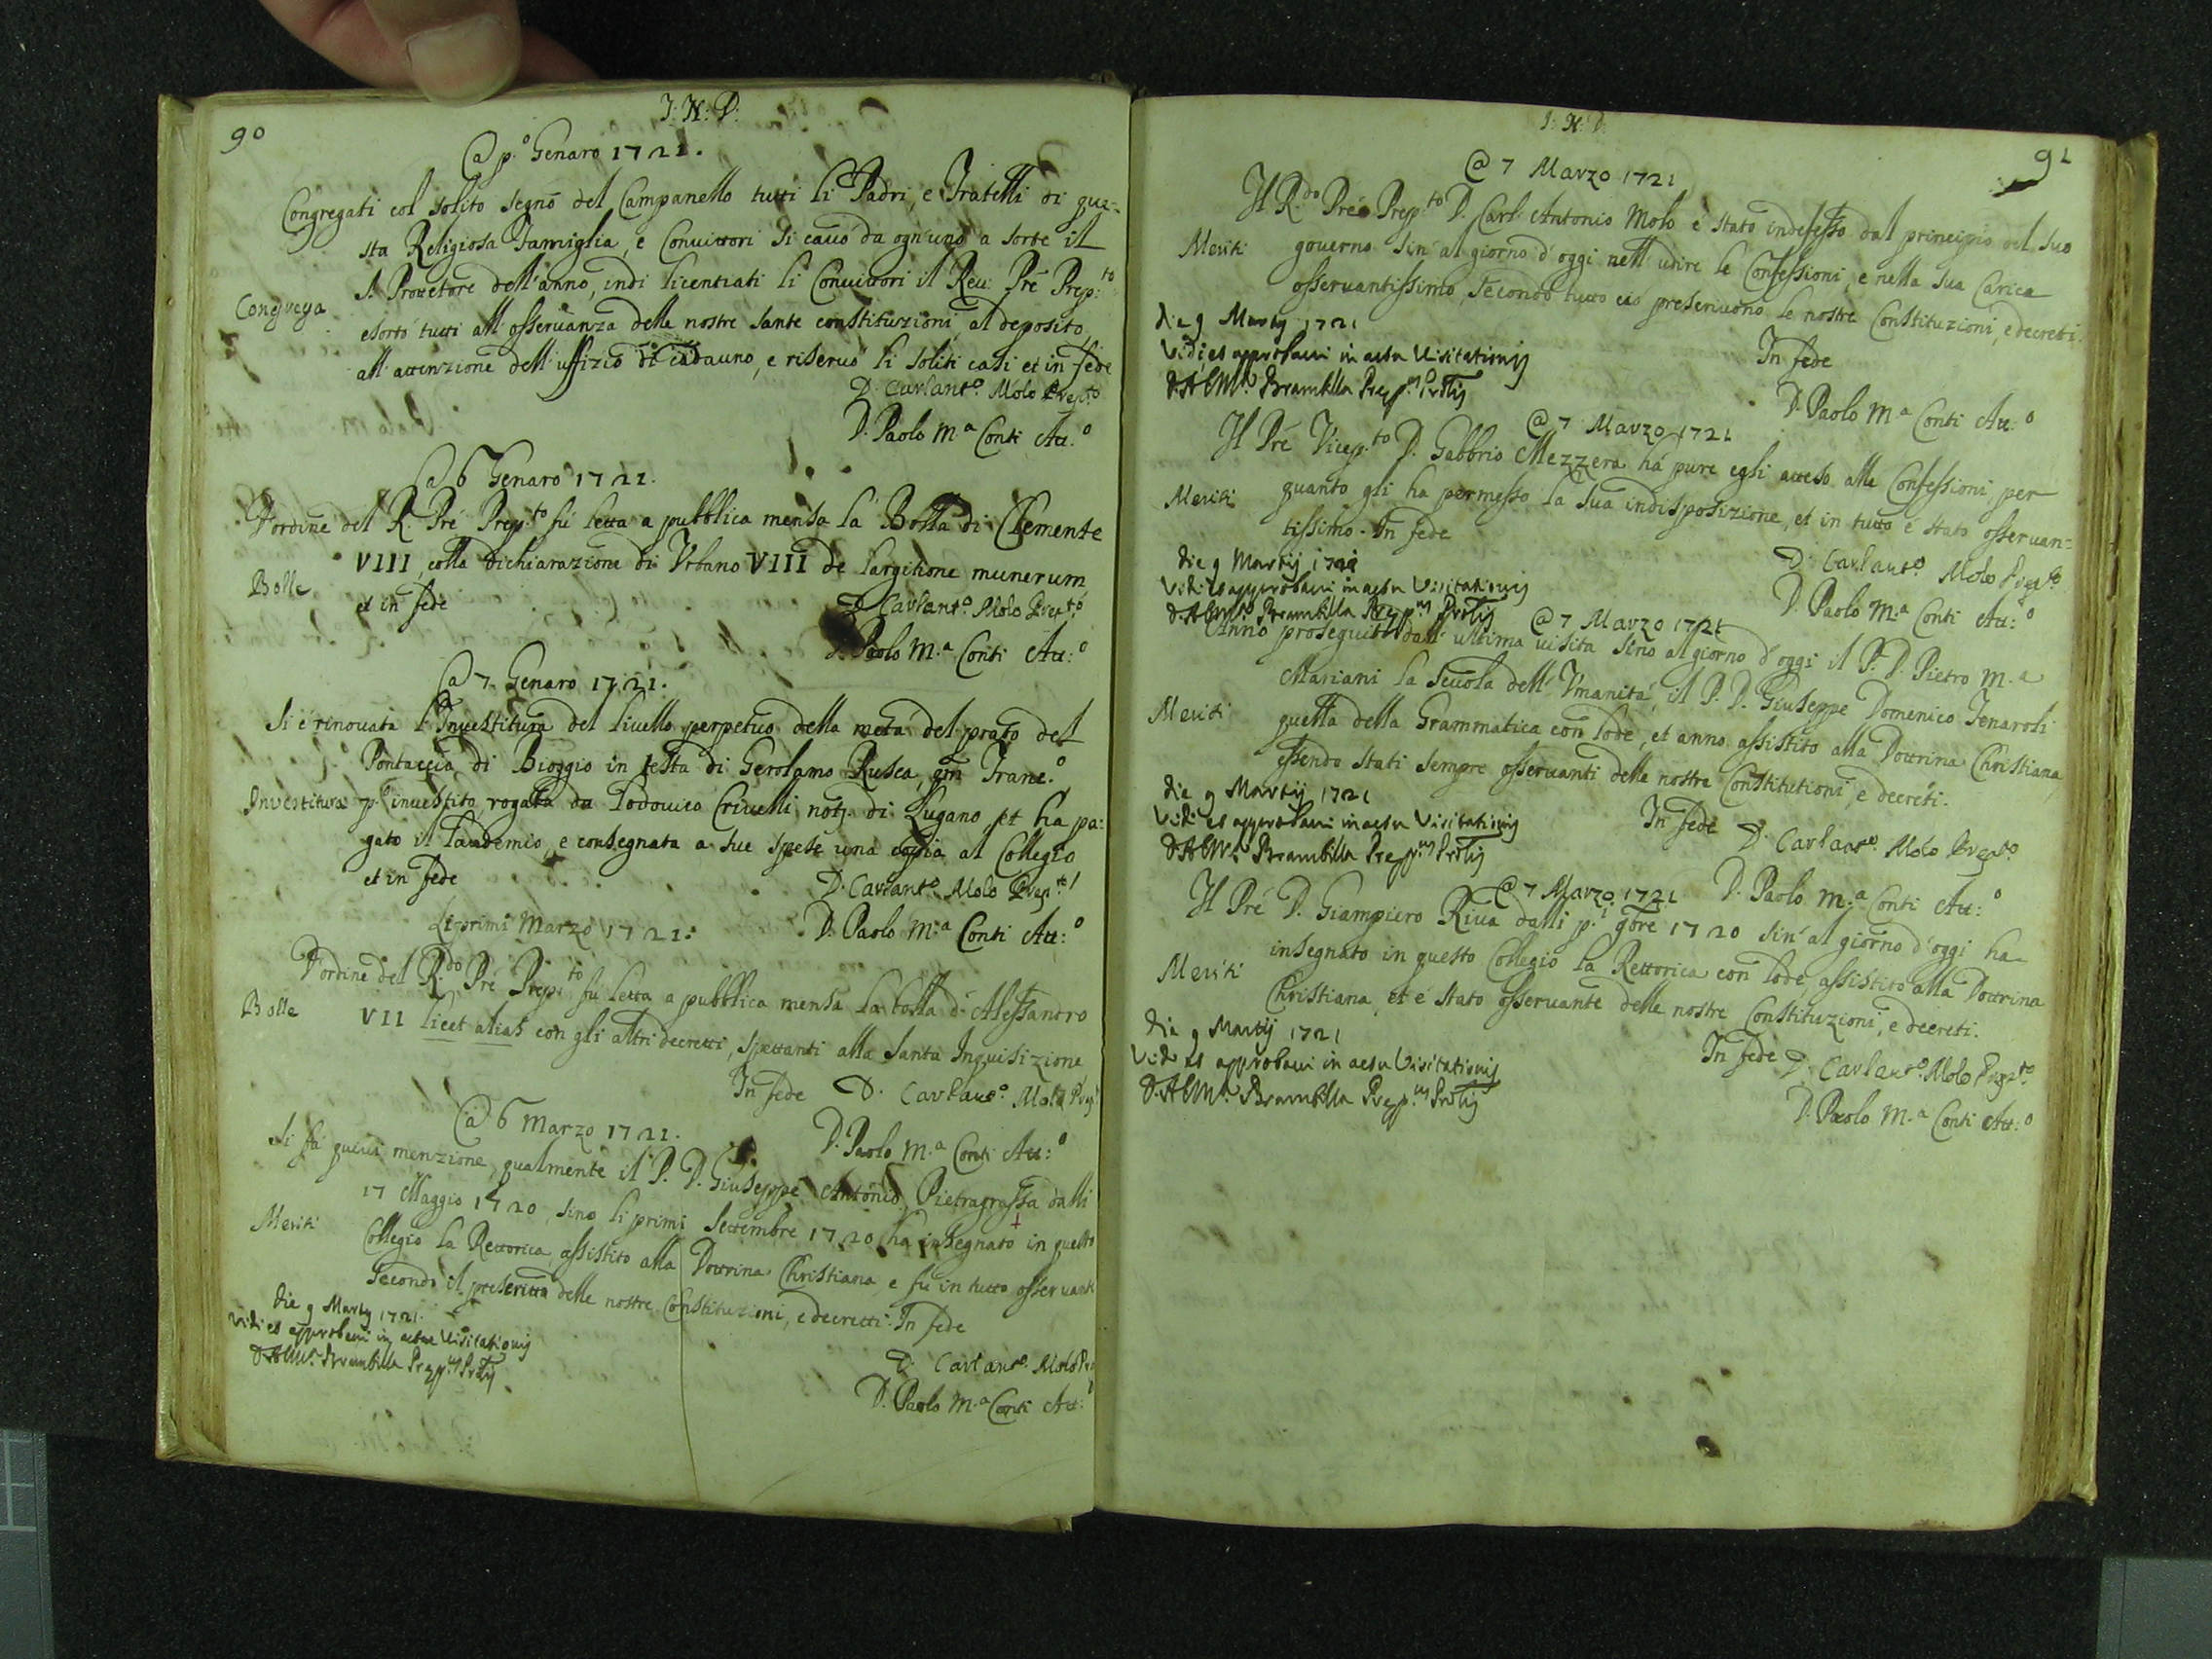 90
J. N. D.
@ p.º Genaro 1721.
Congregati col solito segno del Campanello tutti li Padri, e Fratelli di que=
sta Religiosa Famiglia, e Convittori si cavò da ogn'uno a sorte il
S. Protettore dell'anno, indi licentiati li Convittori il Rev: Pre Prep:to
Congrega
esortò tutti all'osservanza delle nostre sante constituzioni, al deposito,
all'attenzione dell'uffizio di cadauno, e riservò li soliti casi et in fede
D. Carlantº Molo Prepto
D. Paolo M.a Conti Att.º
@ 6 Genaro 1721.
D'ordine del R. Pre Prep.to fù letta a pubblica mensa la Bolla di Clemente
VIII, colla dichiarazione di Urbano VIII de largitione munerum
Bolle
et in fede
D. Carlant.º Molo Prepto
D. Paolo M.a Conti Att:º
@ 7. Genaro 1721.
Si è rinovata l'Investitura del livello perpetuo della metà del prato del
Pontaccia di Bioggio in testa di Gerolamo Rusca, qm Franc.º
Investitura
pº investito, rogata da Lodovico Crivelli not. di Lugano, et ha pa:
gato il laudemio, e consegnata a sue spese una copia al Collegio
et in fede
D. Carlantº Molo Prep.to
D. Paolo M.a Conti Att:º
Li primi Marzo 1721.
D'ordine del R.do Pre Prep.to fù letta a pubblica mensa la bolla di Alessandro
Bolle
VII licet alias con gli altri decretti, spettanti alla Santa Inquisizione
In fede D. Carlant.º Molo Prepto
D. Paolo M.a Conti Att:º
@ 6 Marzo 1721.
Si fà quivi menzione, qualmente il P. D. Giuseppe Antonio Pietragrassa dalli
17 Maggio 1720, sino li primi Settembre 1720 ha insegnato in questo
Meriti
Collegio la Rettorica, assistito alla Dottrina Christiana, e fù in tutto osservante
secondo il prescritto delle nostre Constituzioni, e decretti. In fede
die 9 Martij 1721.
Vidi et approbavi in actu Visitationis
Brambilla Prep.us Prolis
D. Carlantº Molo Pre
D. Paolo M.a Conti Att:º
J. N. D.
91
@ 7 Marzo 1721
Il R.do Pre Prep.to D. Carl' Antonio Molo è stato indefesso dal principio del suo
Meriti
governo sin'al giorno d'oggi nell'udire le Confessioni, e nella sua Carica
osservantissimo, secondo tutto ciò prescrivono le nostre Constituzioni, e decreti.
die 9 Martij 1721
Vidi, et approbavi in actu Visitationis
Brambilla Prep.us Prolis
In fede
D. Paolo M.a Conti Att:º
@ 7 Marzo 1721
Il Pre Vicep.to D. Gabbrio Mezzera hà pure egli atteso alle Confessioni, per
Meriti
quanto gli ha permesso la sua indisposizione, et in tutto è stato osservan=
tissimo. In fede
D. Carlantº Molo Prepto
die 9 Martij 1721
Vidi et approbavi in actu Visitationis
Brambilla Prep.us Prolis
D. Paolo M.a Conti Att:º
@ 7 Marzo 1721
Anno proseguito dall'ultima visita sino al giorno d'oggi il P. D. Pietro M.a
Mariani la Scuola dell'Umanità, il P. D. Giuseppe Domenico Fenaroli
Meriti
quella della Grammatica con lode, et anno assistito alla Dottrina Christiana,
essendo stati sempre osservanti delle nostre Constitutioni, e decreti.
die 9 Martij 1721
Vidi et approbavi in actu Visitationis
Brambilla Prep.us Prolis
In fede
D. Carlantº Molo Prepto
D. Paolo M.a Conti Att:º
@ 7 Marzo 1721
Il Pre D. Giampiero Riva dalli p.i 9bre 1720 sin'al giorno d'oggi ha
insegnato in questo Collegio la Rettorica con lode, assistito alla Dottrina
Meriti
Christiana, et è stato osservante delle nostre Constituzioni, e decreti.
die 9 Martij 1721
Vidi et approbavi in actu Visitationis
Brambilla Prep.us Prolis
In fede
D. Carlantº Molo Prepto
D. Paolo M.a Conti Att:º